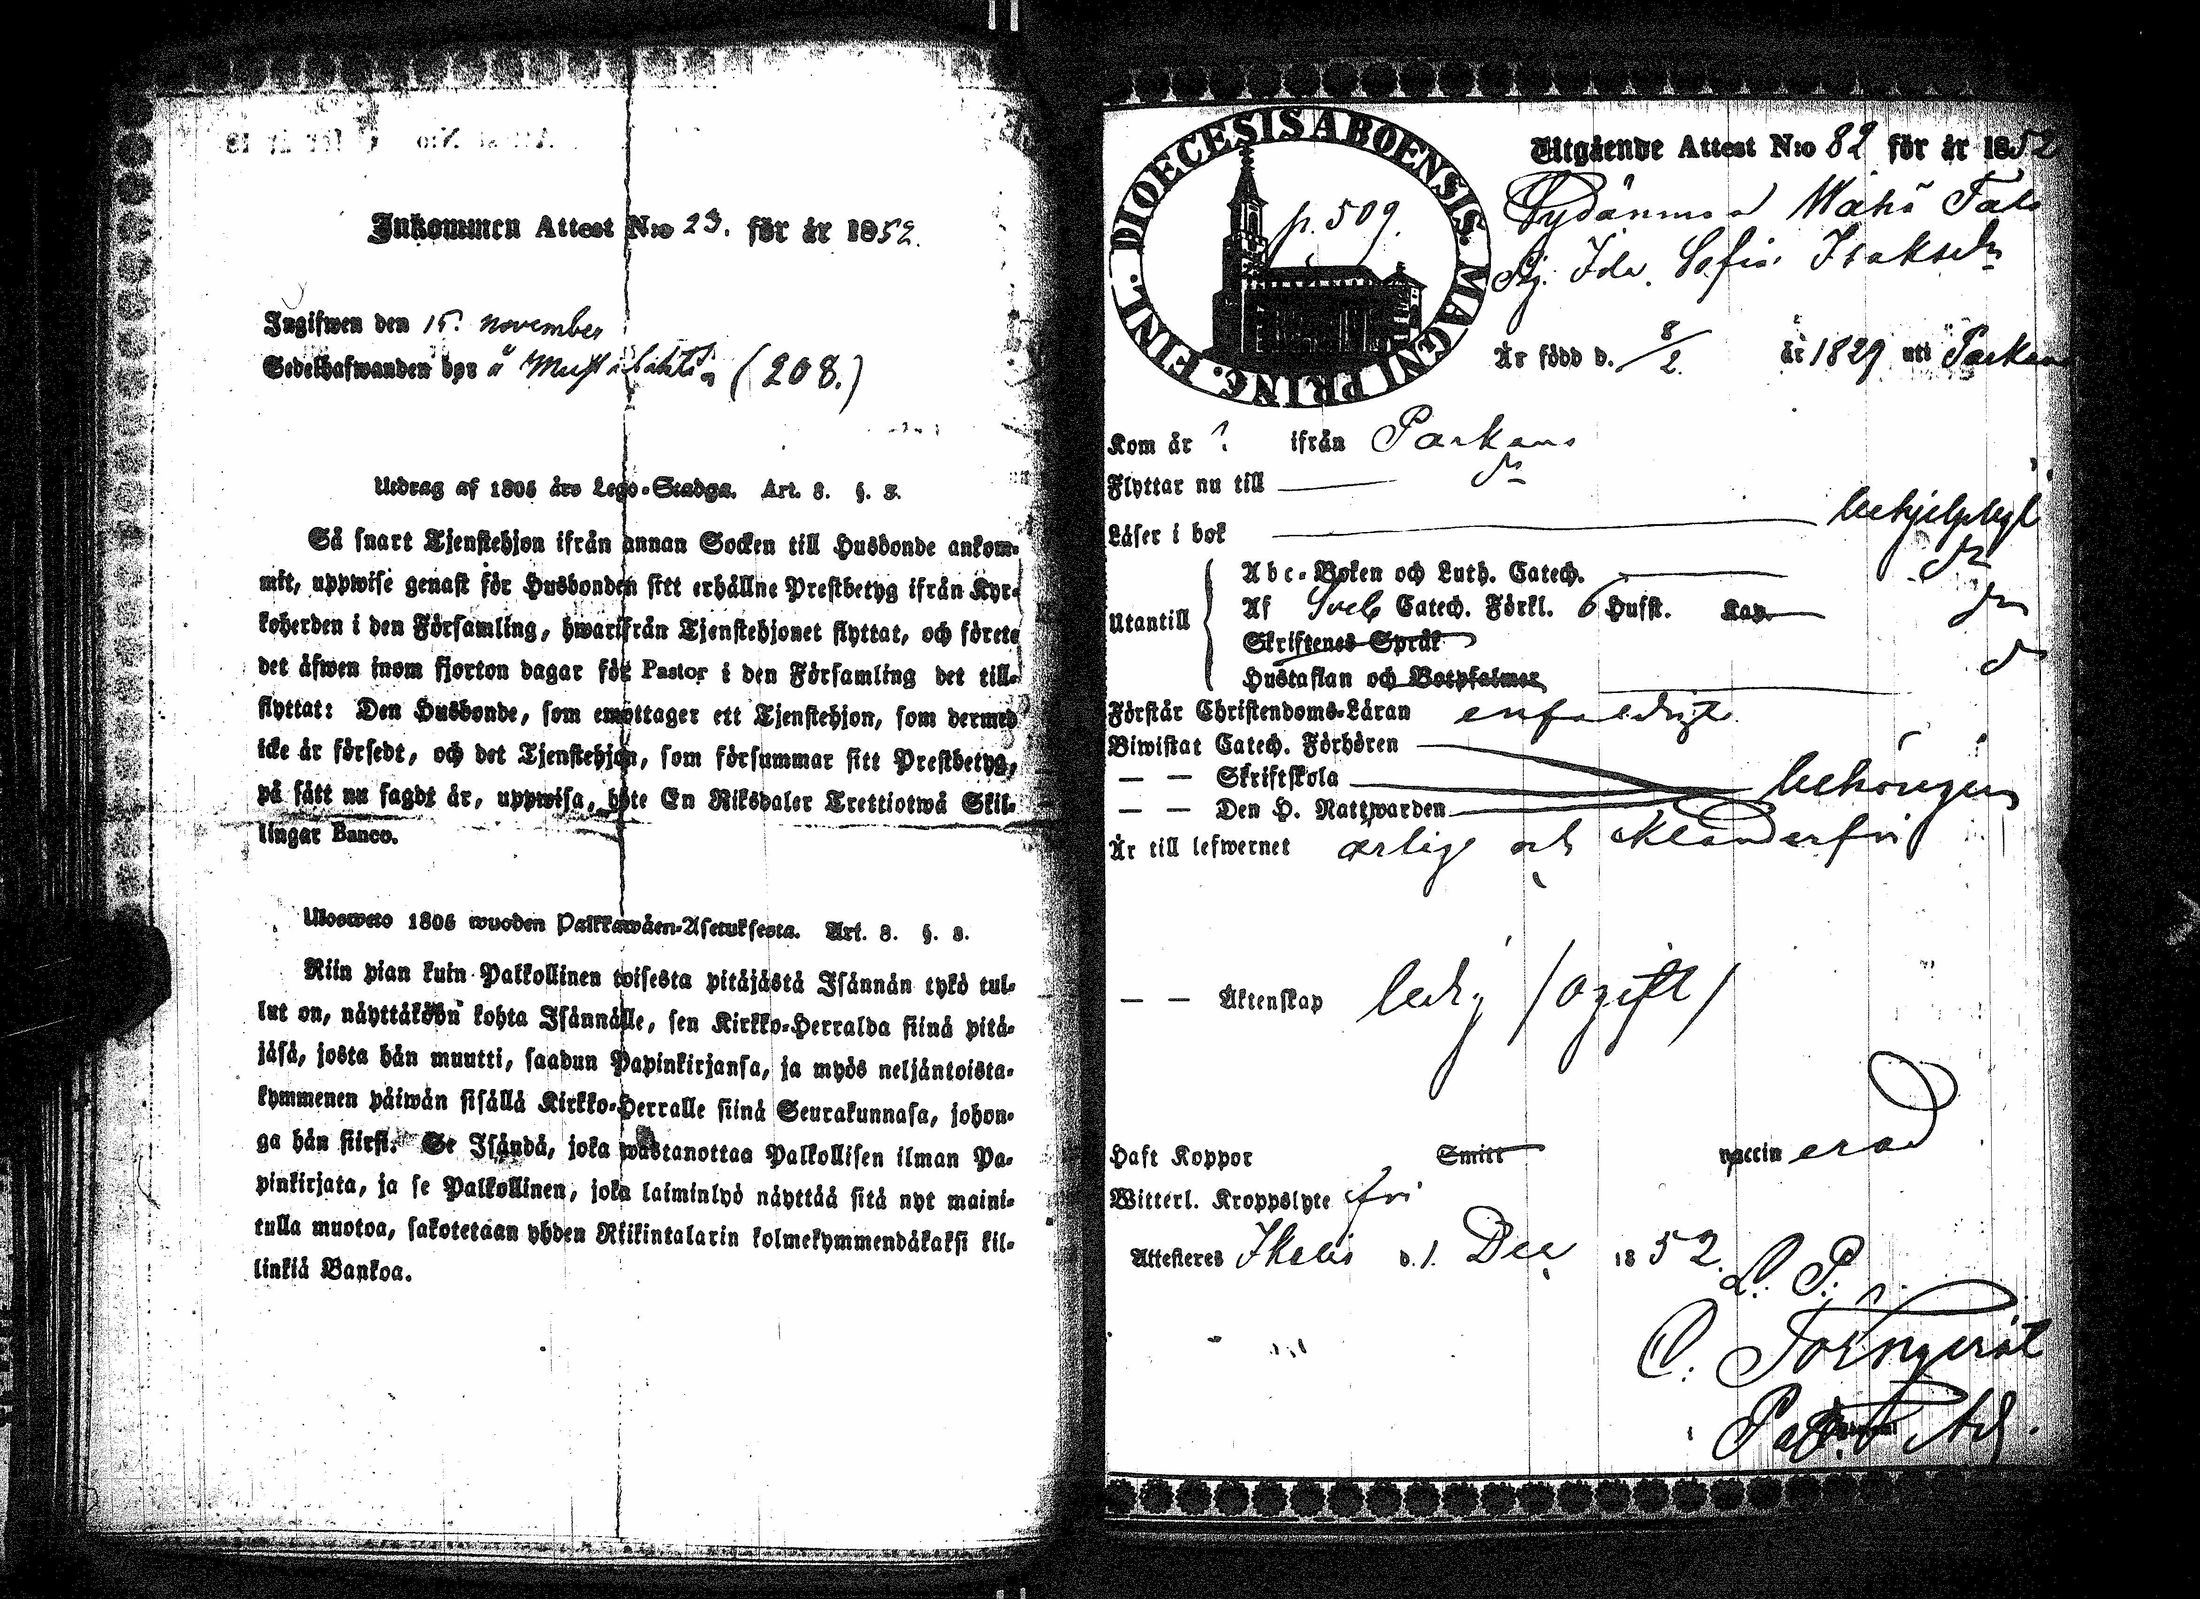 Inkommen Attest N:o 23. för år 1852.
Ingifwen den 15. november
Sedelhafwanden bor å (208.)
Utdrag af 1805 års Lego-Stadga. Art. 8. §. 8.
Så snart Tjenstehjon ifrån annan Socken till Husbonde ankom-
mit, uppwise genast för Husbonden sitt erhållne Prestbetyg ifrån Kyr-
koherden i den Församling, hwarifrån Tjenstehjonet flyttat, och förete
det äfwen inom fjorton dagar för Pastor i den Församling det till-
flyttat: Den Husbonde, som emottager ett Tjenstehjon, som dermed
icke är försedt, och det Tjenstehjon, som försummar sitt Prestbetyg,
på sätt nu sagdt är, uppwisa, böte En Riksdaler Trettiotwå Skil-
lingar Banco.
Ulosweto 1805 wuoden Palkkawäen-Asetuksesta. Art. 8. §. 8.
Niin pian kuin Palkollinen toisesta pitäjästä Isännän tykö tul-
lut on, näyttäköön kohta Isännälle, sen Kirkko-Herralda siinä pitä-
jäsä, josta hän muutti, saadun Papinkirjansa, ja myös neljäntoista-
kymmenen päiwän sisällä Kirkko-Herralle siinä Seurakunnasa, johon-
ga hän siirsi. Se Isändä, joka wastanottaa Palkollisen ilman Pa-
pinkirjata, ja se Palkollinen, joka laiminlyö näyttää sitä nyt maini-
tulla muotoa, sakotetaan yhden Riikintalarin kolmekymmendäkaksi kil-
linkiä Bankoa.
DIOECESIS ABOENSIS. MAGNI PRINC. FINL.
p. 509.
Utgående Attest N:o 82 för år 1852
Pj. Ida Sofia Isaksdr
Är född d. 8/2. år 1829 uti Parkano
Kom år ? ifrån Parkano
Flyttar nu till dr
Läser i bok behjelpligt
Utantill
Abc-Boken och Luth. Catech. dr
Af Sveb Catech. Förkl. 6 Hufst. Kap. dr
Skriftenes Språk
Hustaflan och Botpsalmer d
Förstår Christendoms-Läran enfaldigt
Biwistat Catech. Förhören
— — Skriftskola behörigen
— — Den H. Nattwarden
Är till lefwernet ärlig och klanderfri
— — Äktenskap ledig /ogift/
Haft Koppor Smitt vaccin erad
Witterl. Kroppslyte fri
Attesteres Ikalis d. 1. Dec 1852.